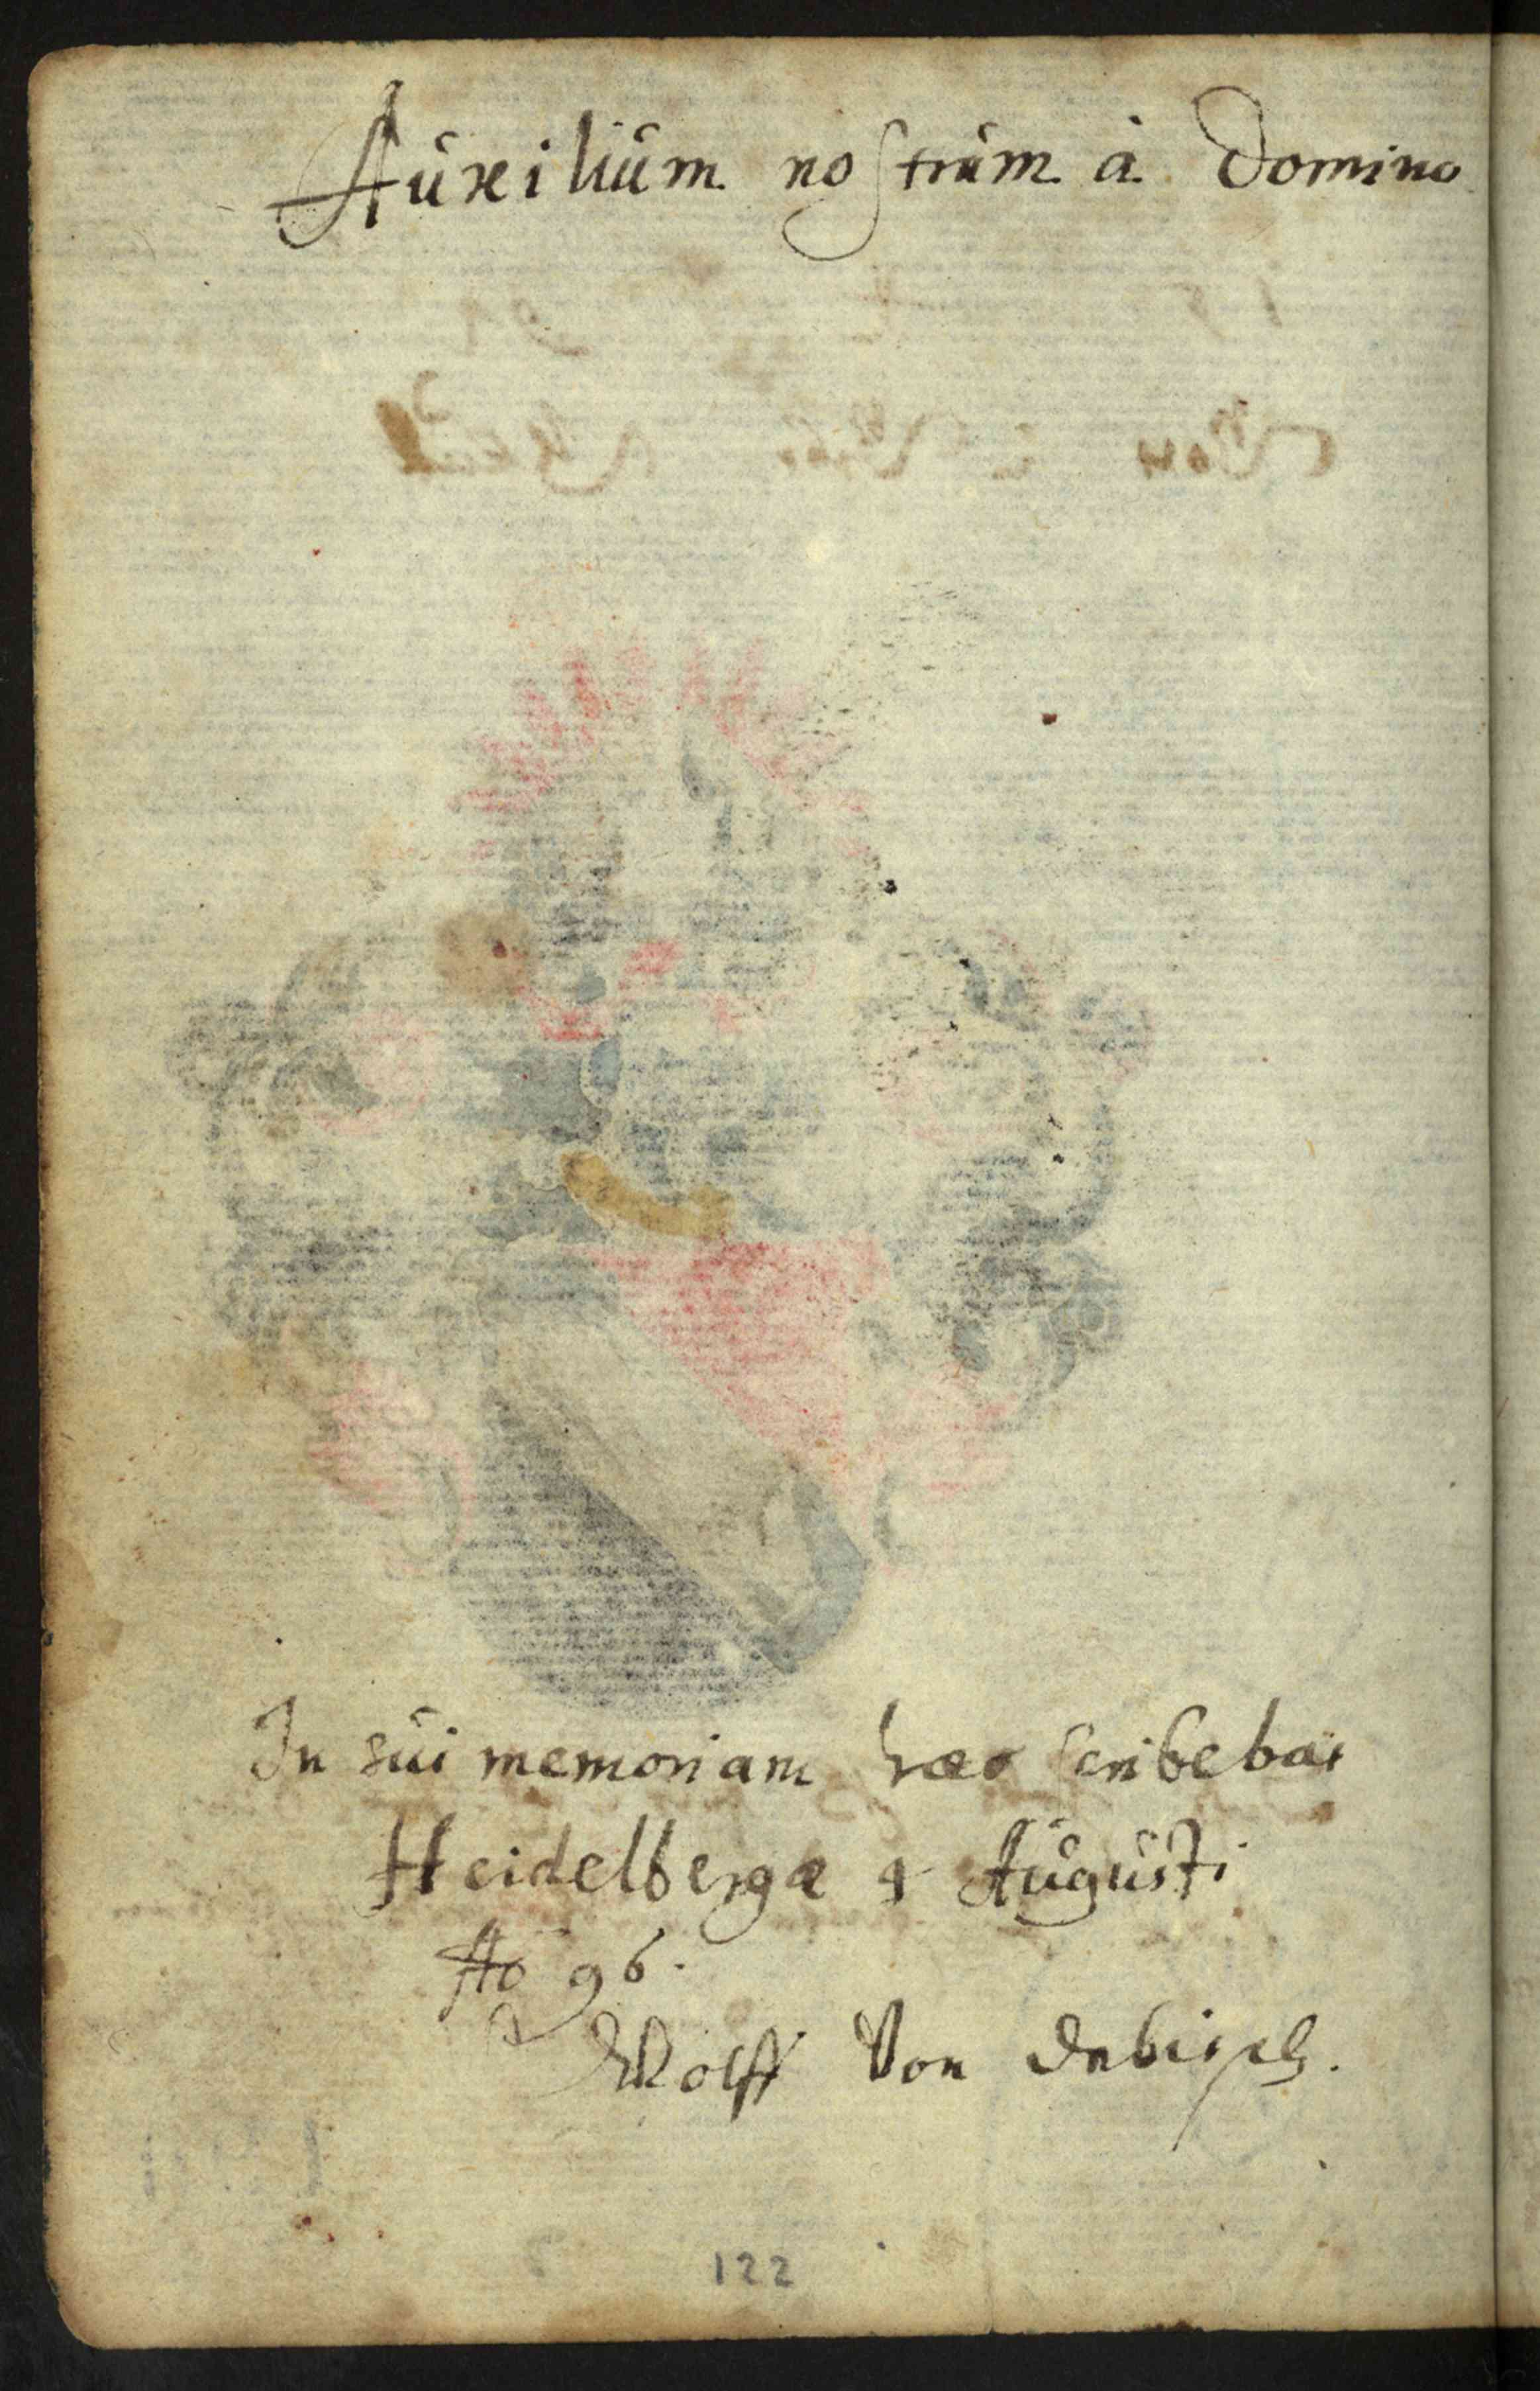 Auxilium nostrum à Domino
In sui memoriam haec scribebat
Heidelbergae 4 Augusti
Ao 96.
Wolff Von
122